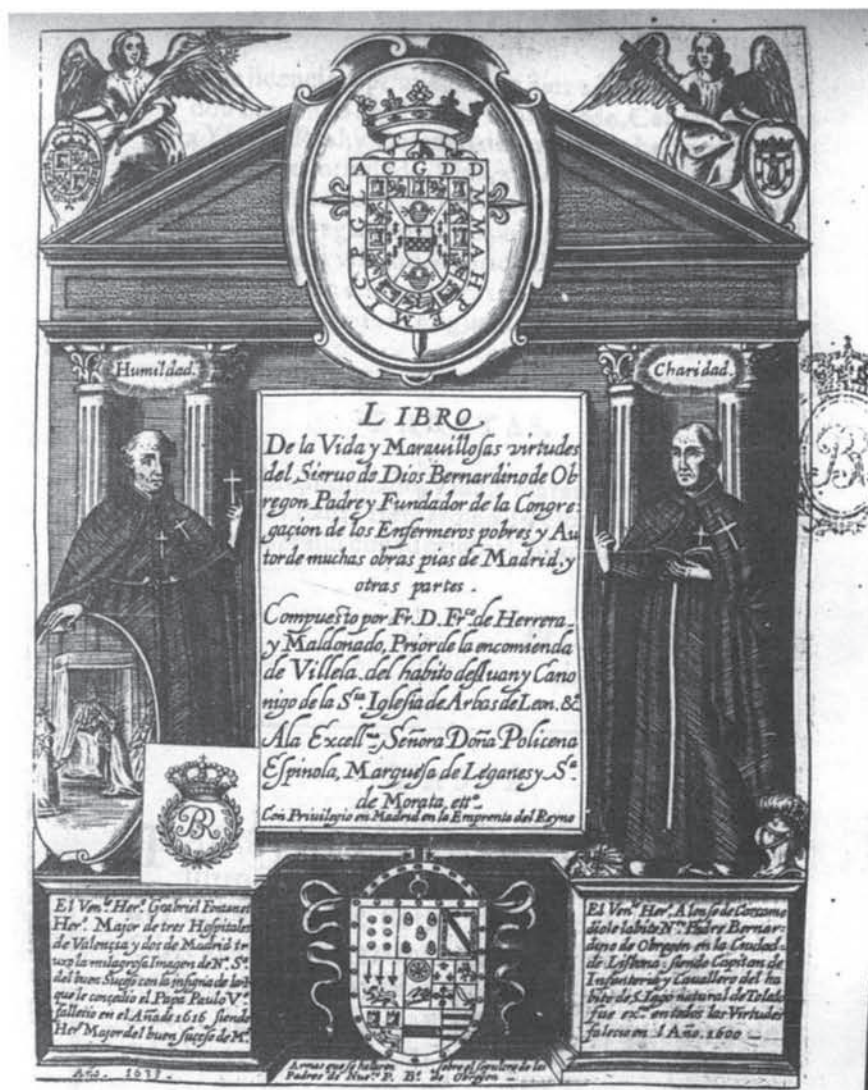 A C G D D
M A H P E M I C P G I
Humildad.
Charidad.
LIBRO
De la Vida y Marauillosas virtudes
del Sieruo de Dios Bernardino de Ob
regon Padre y Fundador de la Congre-
gacion de los Enfermeros pobres y Au
tor de muchas obras pias de Madrid, y
otras partes.
Compuesto por Fr. D. Frco. de Herrera
y Maldonado, Prior de la encomienda
de Villela del habito de S Iuan y Cano
nigo de la Sta. Iglesia de Arbas de Leon. &c
A la Excellma. Señora Doña Policena
Espinola, Marquesa de Leganes y Sa.
de Morata, etta.
Con Privilegio en Madrid en la Emprenta del Reyno
BR
El Vene. Hero. Grabriel Fontanet
Hero. Major de tres Hospitales
de Valençia y dos de Madrid tr
uxo la milagrosa Imagen de Na. Sa.
del buen Suçeso con la insignia de
que le conçedio el Papa Paulo Vo.
falleçio en el Año de 1616 siendo
Hero Major del buen suçeso de Md.
Año. 1633
Armas que se hallaron sobre el sepulcro de los
Padres de Nuero. P. Bo. de Obregon
El Vene. Hero. Alonso de
diole labito No. Padre Bernar-
dino de Obregon en la Ciudad
de Lisbona siendo Capitan de
Infanteria y Cauallero del ha
bito de S. Iago natural de Toledo
fue exo. en todas las Virtudes
falecio en l Año. 1600